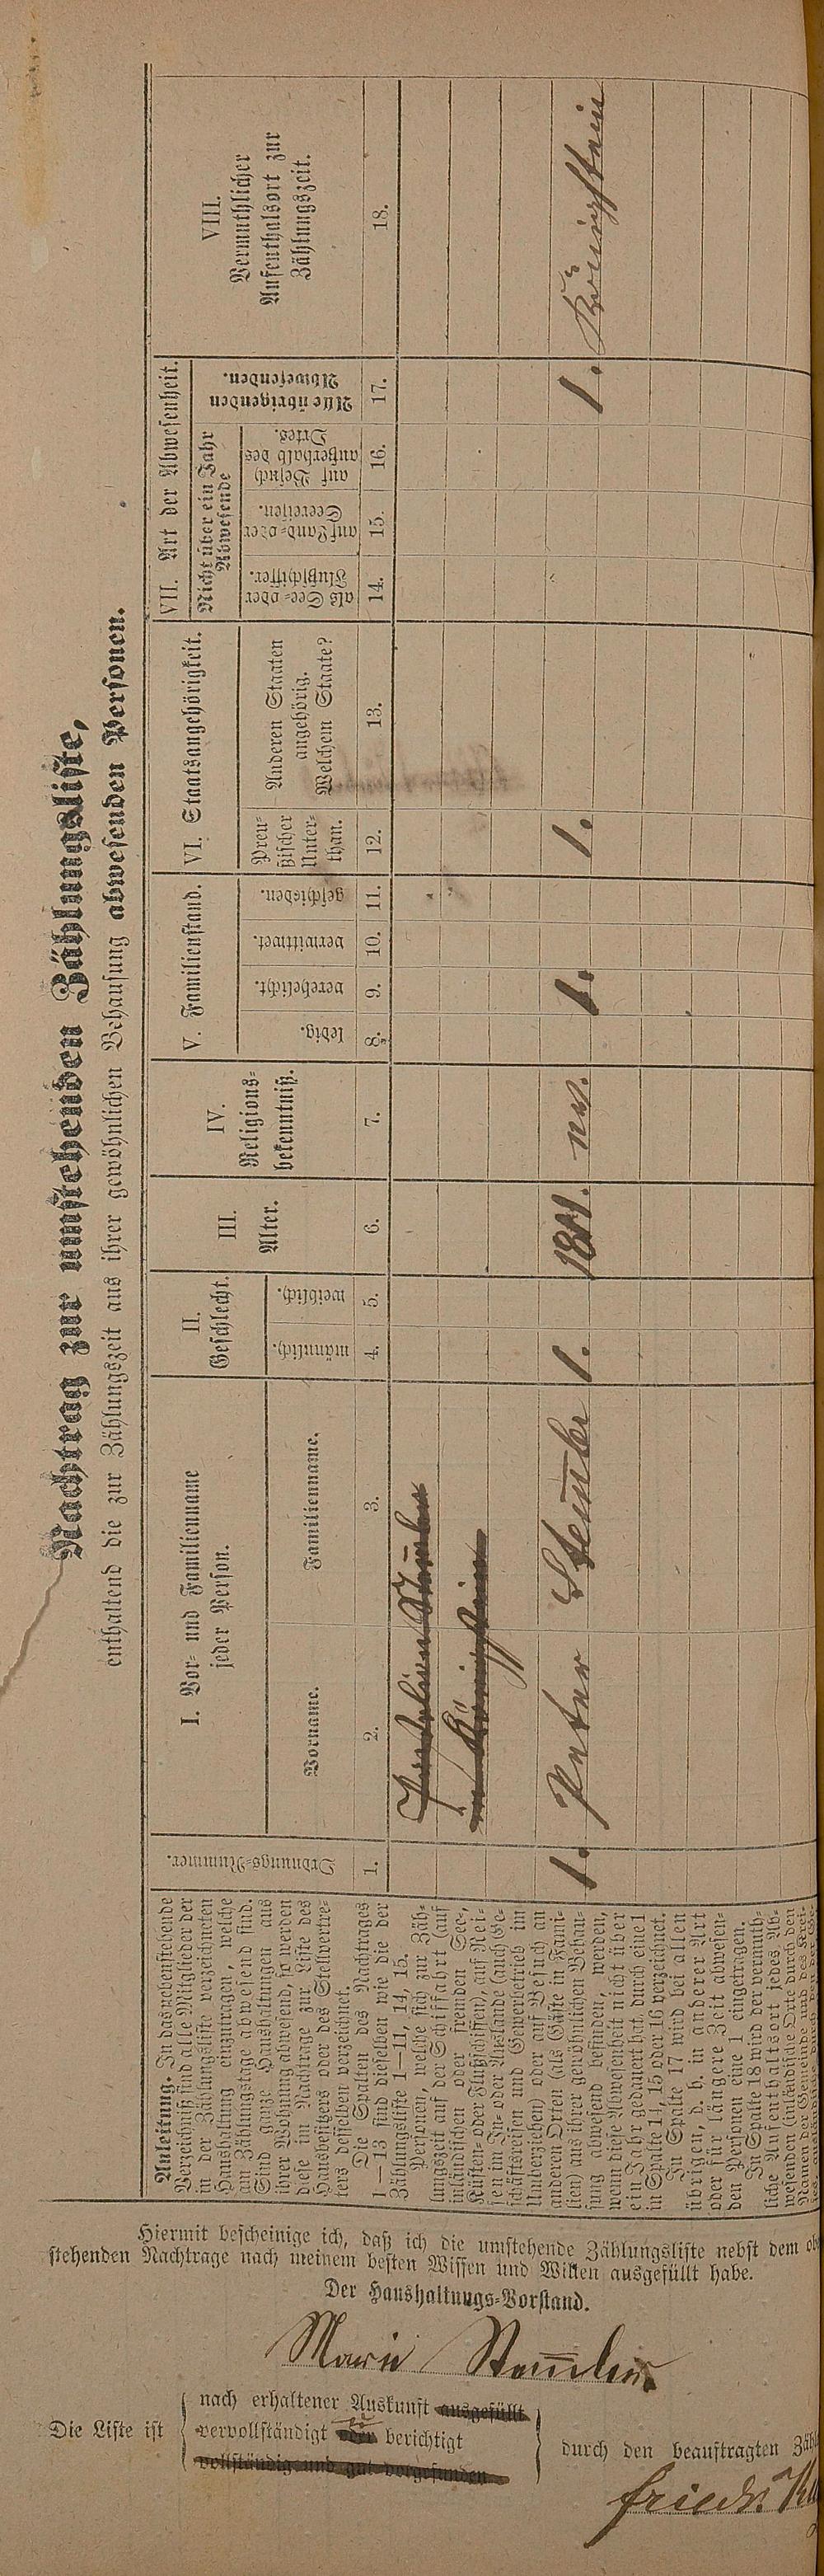 Nachtrag zur umstehenden Zählungsliste,
enthaltend die zur Zählungszeit aus ihrer gewöhnlichen Behausung abwesenden Personen.
Anleitung. In das nebenstehende
Verzeichniß sind alle Mitglieder der
in der Zählungsliste verzeichneten
Haushaltung einzutragen, welche
am Zählungstage abwesend sind.
Sind ganze Haushaltungen aus
ihrer Wohnung abwesend, so werden
diese im Nachtrage zur Liste des
Hausbesitzers oder des Stellvertre-
ters desselben verzeichnet.
Die Spalten des Nachtrages
1—13 sind dieselben wie die der
Zählungsliste 1—11, 14, 15.
Personen, welche sich zur Zäh-
lungszeit auf der Schiffahrt (auf
inländischen oder fremden See-,
Küsten- oder Flußschiffen), auf Rei-
sen im In- oder Auslande (auch Ge-
schäftsreisen und Gewerbetrieb im
Umherziehen) oder auf Besuch an
anderen Orten (als Gäste in Fami-
lien) aus ihrer gewöhnlichen Behau-
sung abwesend befinden, werden,
wenn diese Abwesenheit nicht über
ein Jahr gedauert hat, durch eine 1
in Spalte 14, 15 oder 16 verzeichnet.
In Spalte 17 wird bei allen
übrigen, d. h. in anderer Art
oder für längere Zeit abwesen-
den Personen eine 1 eingetragen.
In Spalte 18 wird der vermuth-
liche Aufenthaltsort jedes Ab-
wesenden (inländische Orte durch den
Namen der Gemeinde und des Krei-
Ordnungs-Nummer.
I. Vor- und Familienname
jeder Person.
Vorname.
Familienname.
II.
Geschlecht.
männlich.
weiblich.
III.
Alter.
IV.
Religions-
bekenntniß.
V. Familienstand.
ledig.
verehelicht.
verwittwet.
geschieden.
VI. Staatsangehörigkeit.
Preu-
ßischer
Unter-
than.
Anderen Staaten
angehörig.
Welchem Staate?
VII. Art der Abwesenheit.
Nicht über ein Jahr
Abwesende
als See- oder
Flußschiffer.
auf Land- oder
Seereisen.
auf Besuch
außerhalb des
Ortes.
Alle übrigen
Abwesenden.
VIII.
Vermuthlicher
Aufenthaltsort zur
Zählungszeit.
1. 2. 3. 4. 5. 6. 7. 8. 9. 10. 11. 12. 13. 14. 15. 16. 17. 18.
in Königstein
1. Peter Stemler 1. 1811. 1. 1. 1. Königstein
Hiermit bescheinige ich, daß ich die umstehende Zählungsliste nebst dem
stehenden Nachtrage nach meinem besten Wissen und Willen ausgefüllt habe.
Der Haushaltungs-Vorstand.
Marie Stem̅ler
Die Liste ist
nach erhaltener Auskunft ausgefüllt
vervollständigt oder berichtigt
vollständig und gut vorgefunden
durch den beauftragten
Friedr.